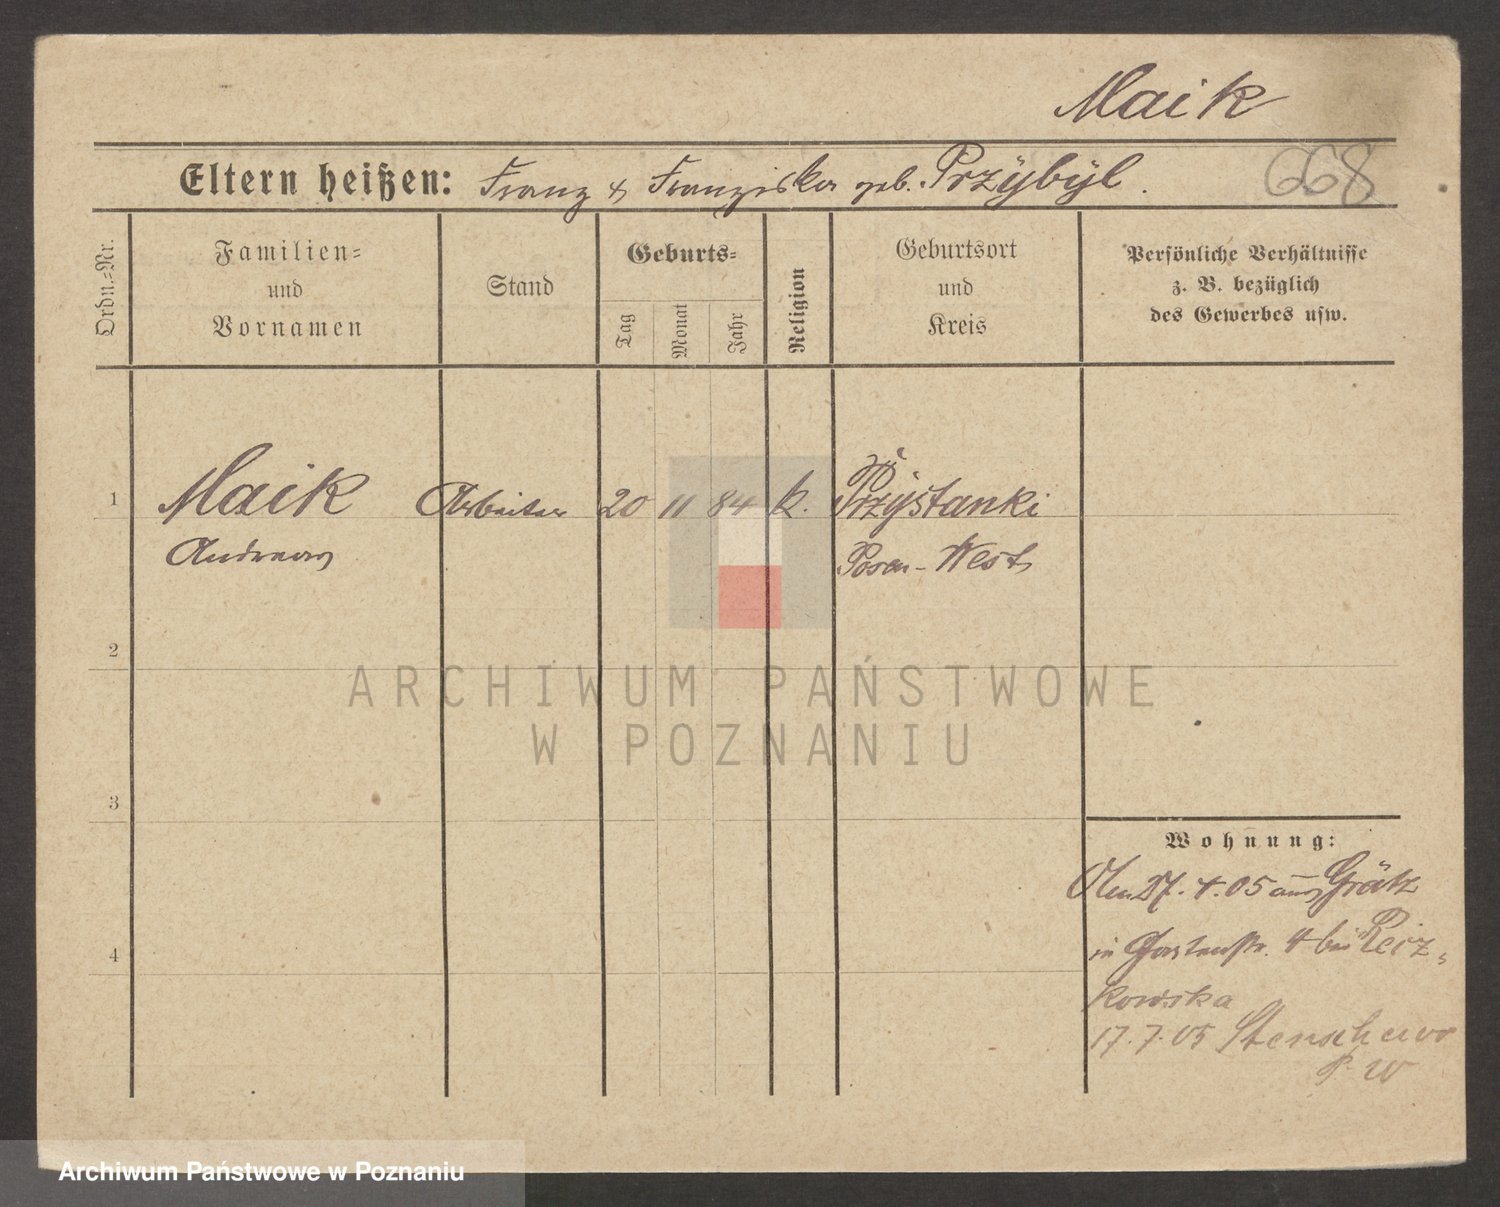 Maik
Eltern heißen: Franz & Franziska geb. Przÿbÿl.
668
Ordn.-Nr.
Familien-
und
Vornamen
Stand
Geburts-
Tag
Monat
Jahr
Religion
Geburtsort
und
Kreis
Persönliche Verhältnisse
z. B. bezüglich
des Gewerbes usw.
1 Maik Arbeiter 20 11 84 k. Przÿstanki
Andreas Posen-West
2
3
4
Wohnung:
27.4.05 aus Grätz
in Gartenstr. 4 bei
kowska
17.7.05 Stenschewo
P. W
ARCHIWUM PAŃSTWOWE
W POZNANIU
Archiwum Państwowe w Poznaniu